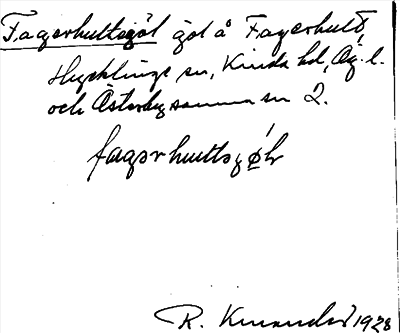 Fagerhultsgöl göl å Fagerhult,
Hycklinge sn, Kinda hd, Ög. l.
och Österby samma sn 2.
fagərhultsgøl
R. Kinander 1928